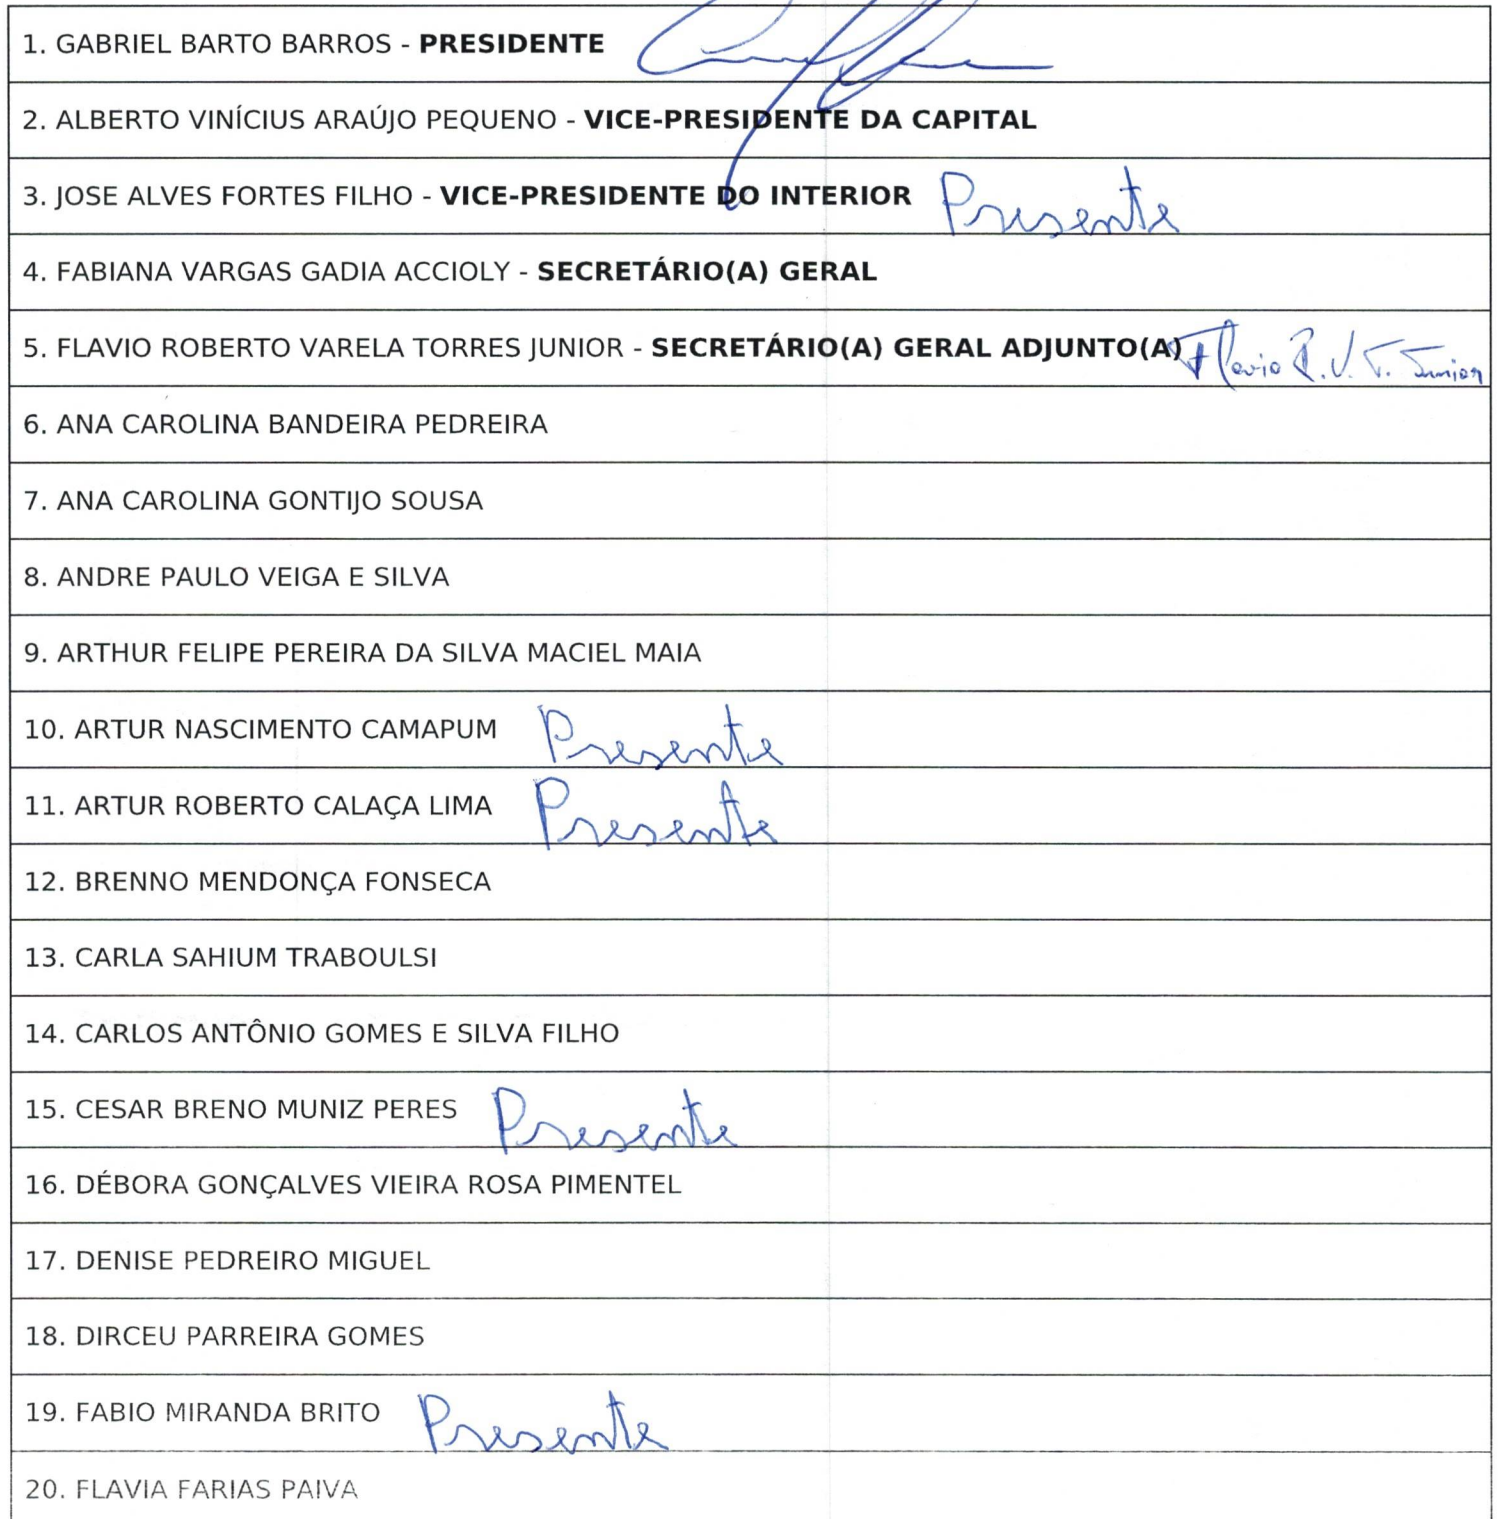 1. GABRIEL BARTO BARROS - PRESIDENTE
2. ALBERTO VINÍCIUS ARAÚJO PEQUENO - VICE-PRESIDENTE DA CAPITAL
3. JOSE ALVES FORTES FILHO - VICE-PRESIDENTE DO INTERIOR Presente
4. FABIANA VARGAS GADIA ACCIOLY - SECRETÁRIO(A) GERAL
5. FLAVIO ROBERTO VARELA TORRES JUNIOR - SECRETÁRIO(A) GERAL ADJUNTO(A) Flavio R. V. T. Junior
6. ANA CAROLINA BANDEIRA PEDREIRA
7. ANA CAROLINA GONTIJO SOUSA
8. ANDRE PAULO VEIGA E SILVA
9. ARTHUR FELIPE PEREIRA DA SILVA MACIEL MAIA
10. ARTUR NASCIMENTO CAMAPUM Presente
11. ARTUR ROBERTO CALAÇA LIMA Presente
12. BRENNO MENDONÇA FONSECA
13. CARLA SAHIUM TRABOULSI
14. CARLOS ANTÔNIO GOMES E SILVA FILHO
15. CESAR BRENO MUNIZ PERES Presente
16. DÉBORA GONÇALVES VIEIRA ROSA PIMENTEL
17. DENISE PEDREIRO MIGUEL
18. DIRCEU PARREIRA GOMES
19. FABIO MIRANDA BRITO Presente
20. FLAVIA FARIAS PAIVA